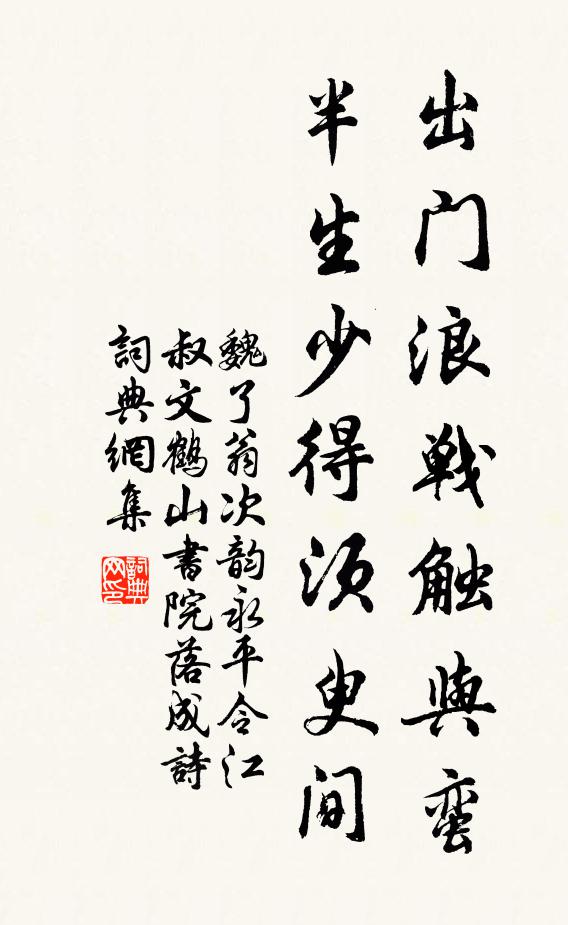 出门浪戦触與蛮
半生少得须臾间
魏了翁次韵永平令江
叔文鹤山書院落成詩
詞典網集
詞典网印